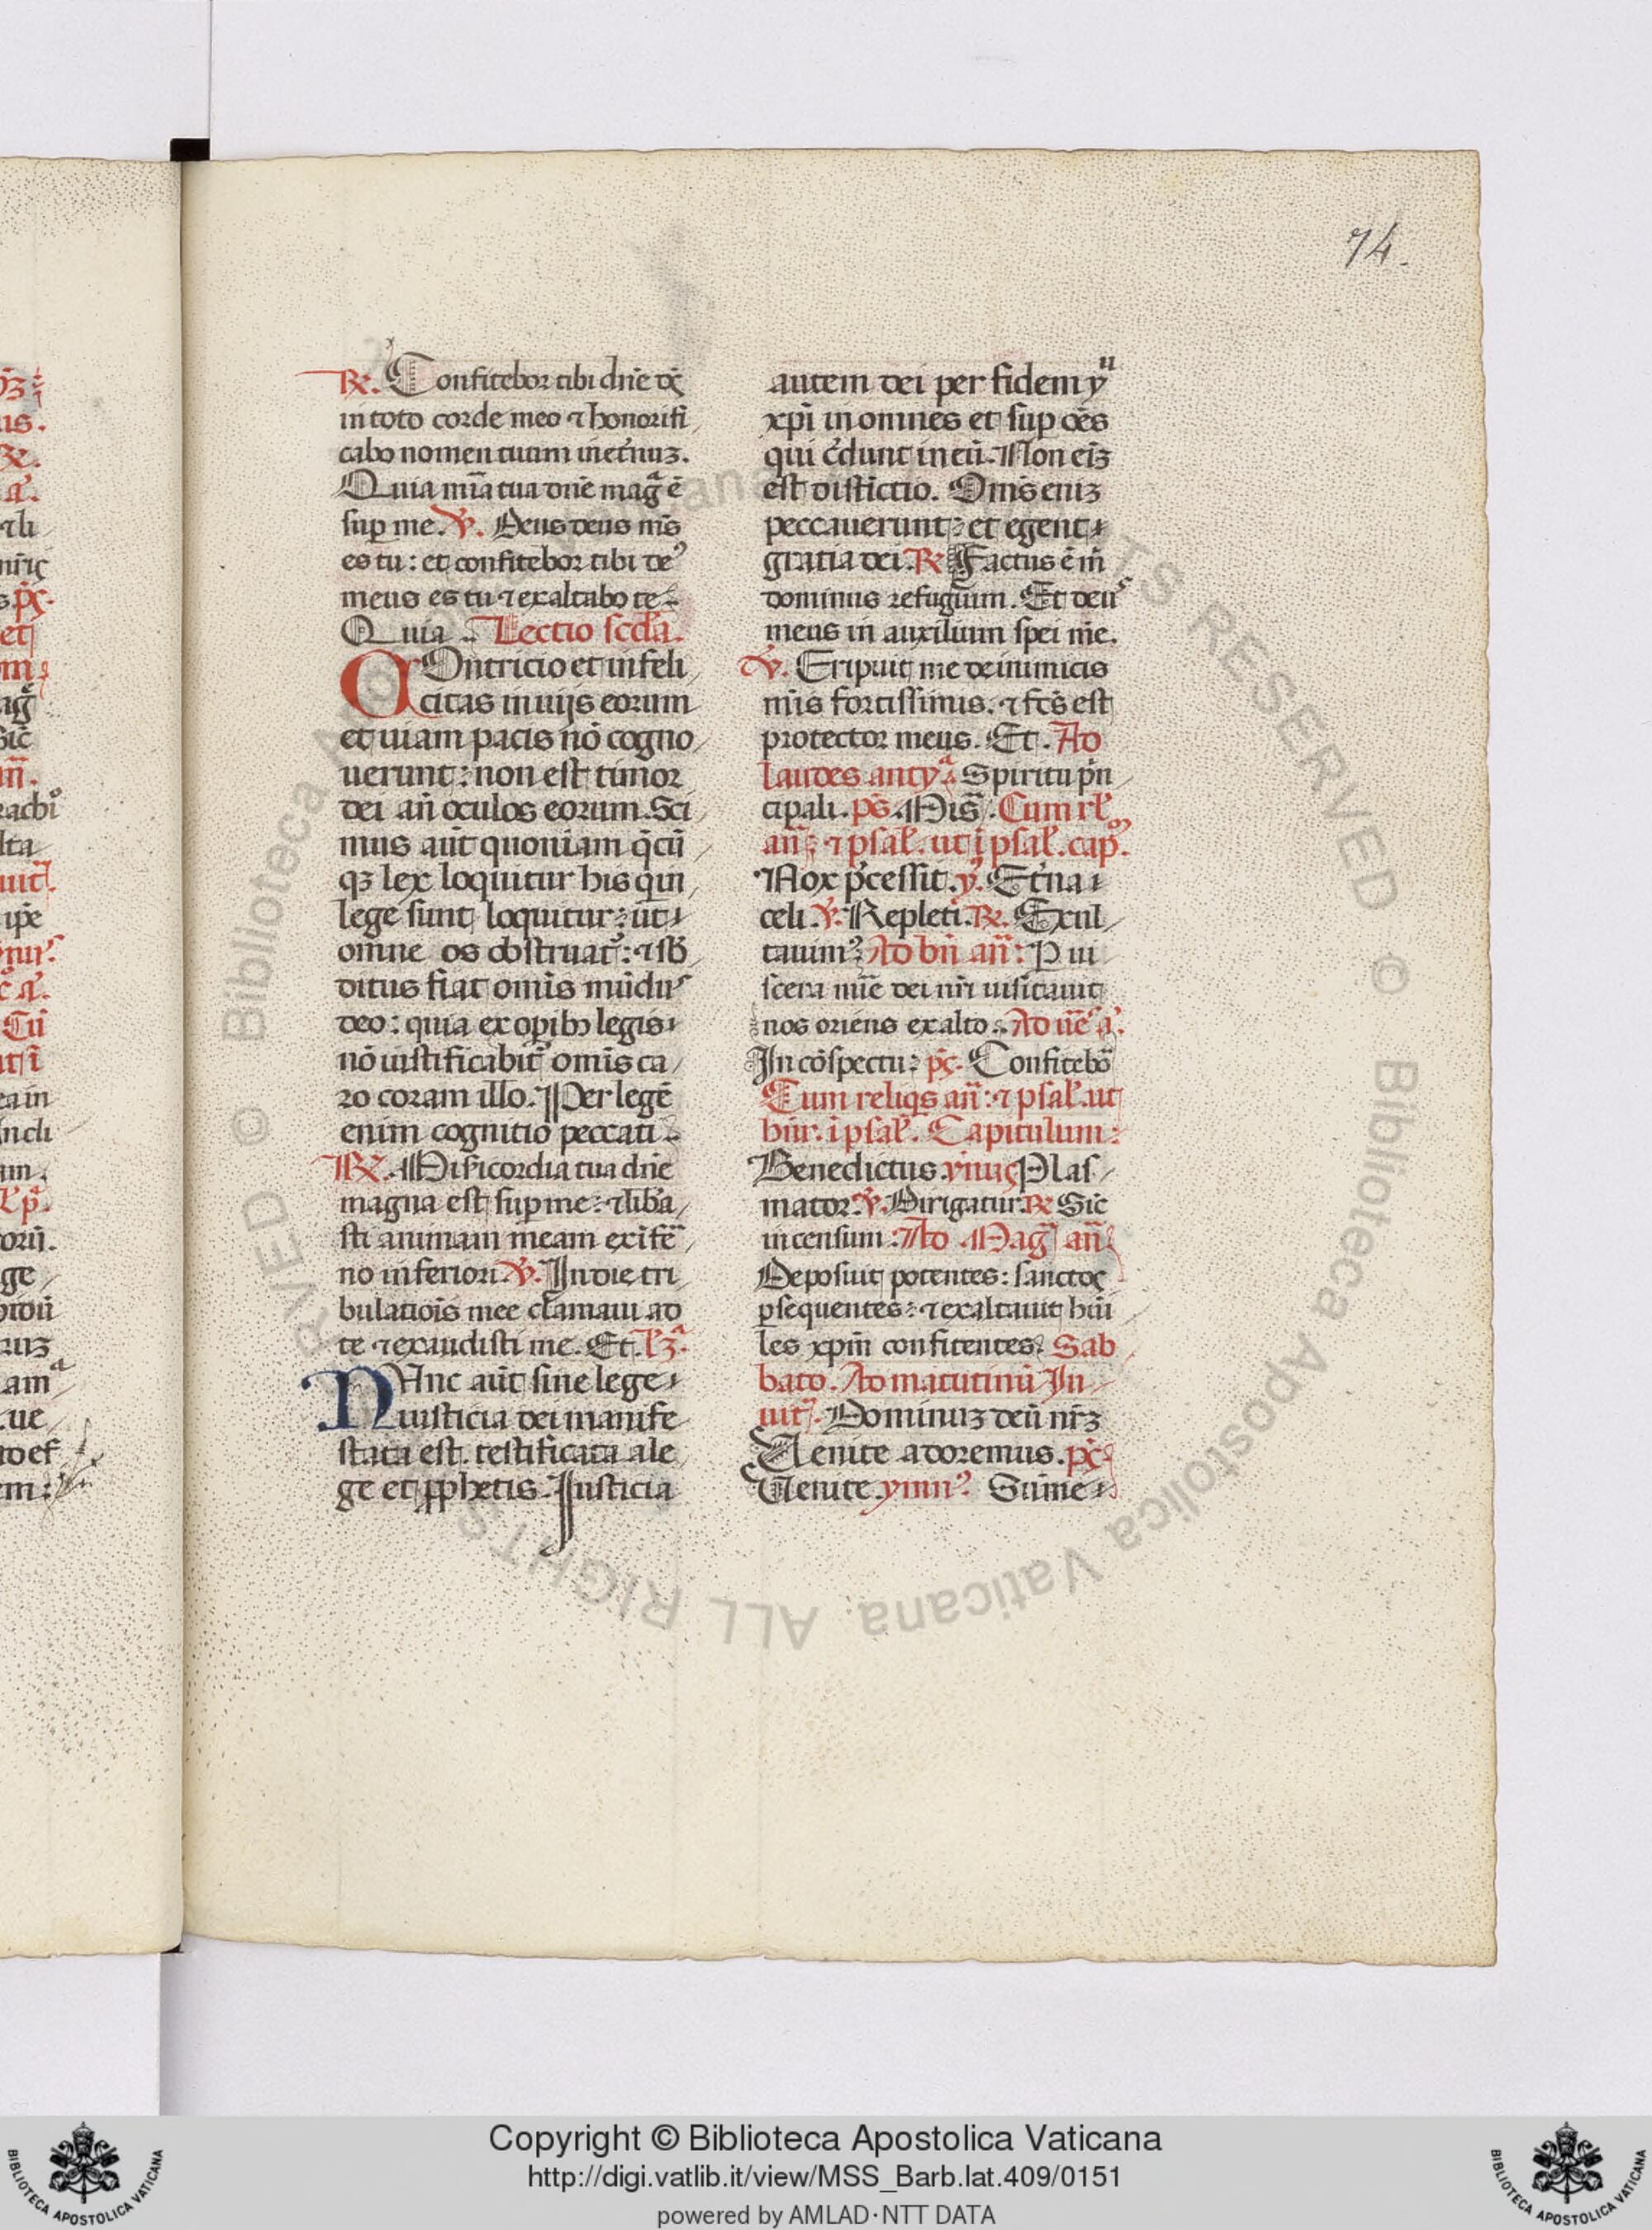 74.
℞. Confitebor tibi dn̄e dꝫ
in toto corde meo ⁊ honorifi
cabo nomen tuum inet̄nuꝫ.
Quia mīa tua dn̄e mag̃ ē
sup̱ me. ℣. Deus deus m̄s
es tu: et confitebor tibi de᷒
meus es tu ⁊ exaltabo te
Quia .. Lectio scd̄a.
COntricio et infeli
citas in uijs eorum
et uiam pacis nō cogno
uerunt: non est timor
dei an̄ oculos eorum. Sci
mus aūt quoniam q̄cū
qꝫ lex loquitur his qui in
lege sunt loquitur: ut
omne os obstruat᷑: ⁊ sb̄
ditus fiat omīs mūdu᷒
deo: quia ex op̱ibꝫ legis
nō iustificabit᷑ omīs ca
ro coram illo. Per legē
enim cognitio peccati
℞. Misīcordia tua dn̄e
magna est sup̱ me: ⁊ lib̄a
sti animam meam ex īfē
no inferiori ℣. In die tri
bulatiōis mee clamaui ad
te ⁊ exaudisti me. Et. l̄ꝫ.ᵃ
NUnc aūt sine lege
iusticia dei manife
stata est. testificata a le
ge et ꝓphetis. Justicia
autem dei per fidem yᵘ
xp̄i in omnes et sup̱ oēs
qui c̄dunt in eū. Non eīꝫ
est distīctio. Omīs eniꝫ
peccauerunt: et egent
gratia dei. ℞ Factus ē m̄
dominus refugium. Et deu᷒
meus in auxilium spei mē.
℣. Eripuit me de inimicis
m̄is fortissimis. ⁊ fc̄s est
protector meus. Et. Ad
laudes antyᵃ. Spiritu p̄n
cipali. ps̄. Mis̄. Cum rel̄
an̄. ⁊ psal̄. ut ī psal̄. cap̄.
Nox p̄cessit. y᷒. Et̄na
celi. ℣. Repleti. ℞. Exul
tauim᷒. Ad bn̄ an̄: P ui
scera mīe dei nr̄i uisitauit
nos oriens ex alto. Ad ue᷒ a᷒.
In cōspectu: ps̄. Confitebo᷑
Cum reliqs an̄: ⁊ psal̄. ut
hn̄r. ī psal̄. Capitulum:
Benedictus. ymꝰ Plas
mator. ℣. Dirigatur. ℞ Sic̄
incensum: Ad Mag̃ an̄.
Deposuit potentes: sanctoꝫ
p̱sequentes: ⁊ exaltauit hūi
les xp̄m confitentes. Sab
bato. Ad matutinū In
uit᷒. Dominuꝫ deū nr̄ꝫ
Uenite adoremus. ps̄
Uenite. ymn᷒. Sūme
Copyright © Biblioteca Apostolica Vaticana
http://digi.vatlib.it/view/MSS_Barb.lat.409/0151
powered by AMLAD·NTT DATA